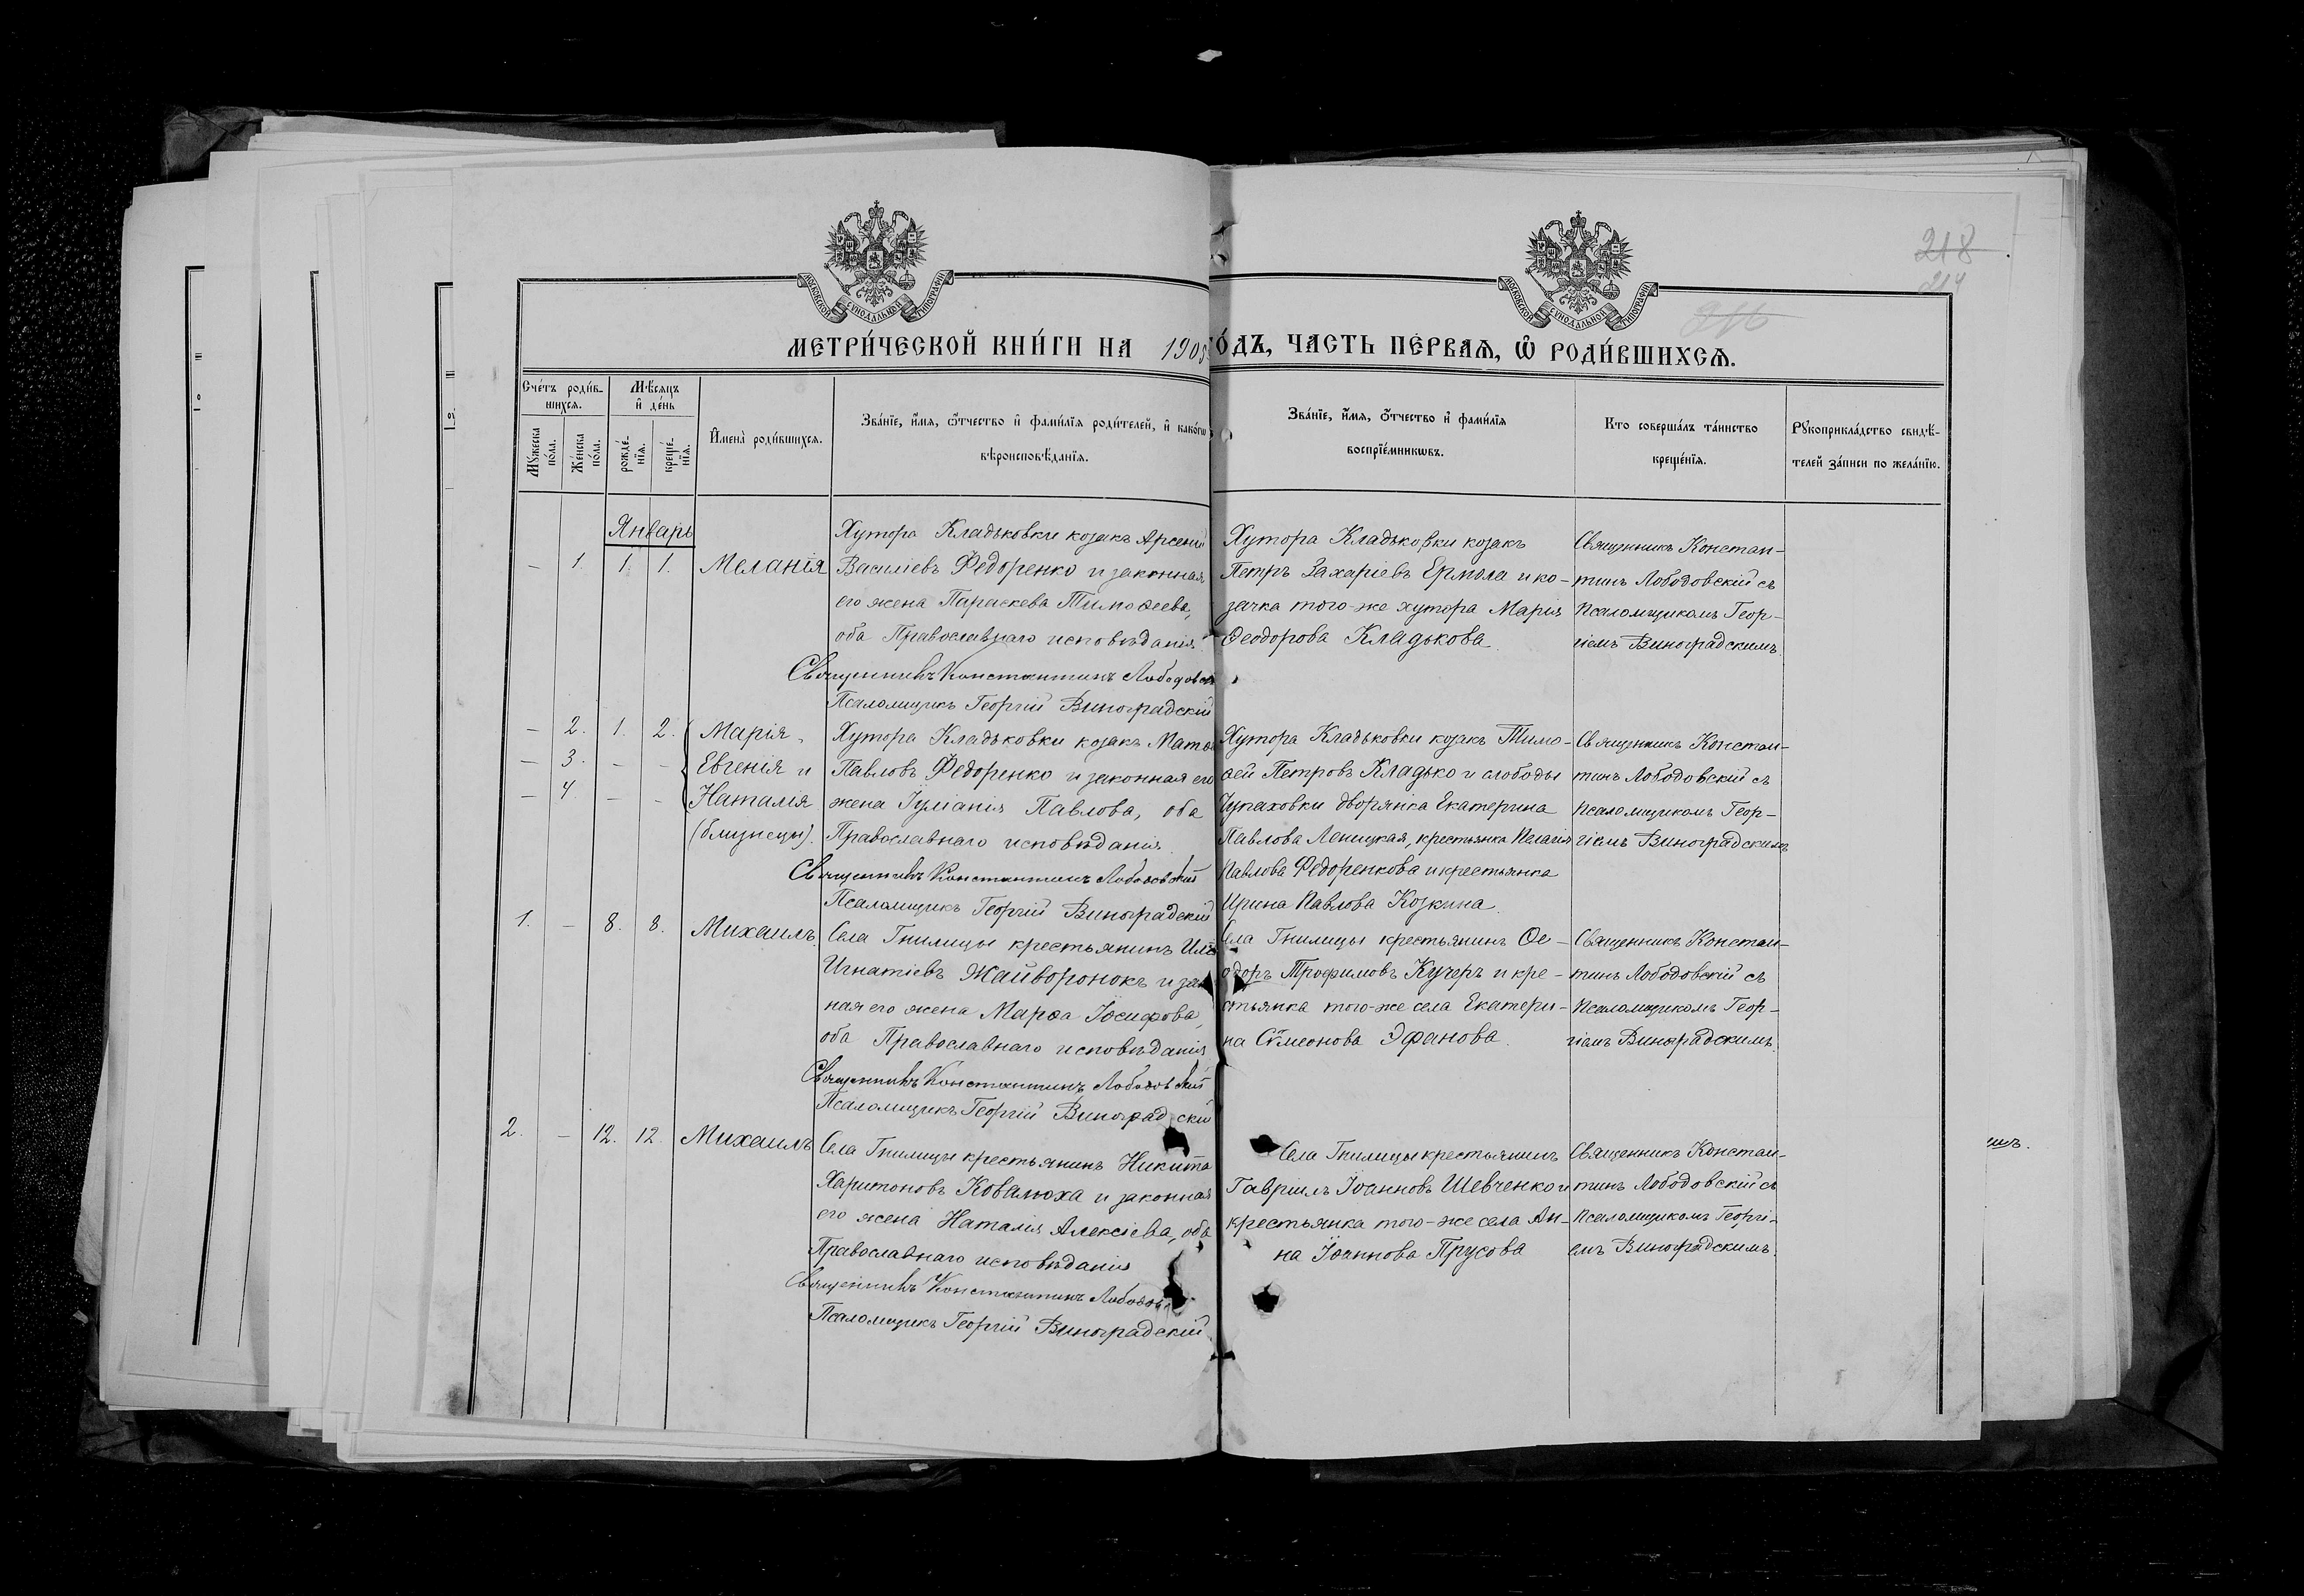 218
214
216
МОСКОВСКОЙ СѴНОДАЛЬНОЙ ТИПОГРАФІИ
МОСКОВСКОЙ СѴНОДАЛЬНОЙ ТИПОГРАФІИ
МЕТРИ́ЧЕСКОЙ КНИ́ГИ НА 1905 ГО́ДЪ, ЧАСТЬ ПЕ́РВАѦ, Ѡ҆ РОДИ́ВШИХСѦ.
Сче́тъ роди́в-
шихсѧ.
Мꙋ́жеска по́ла.
Же́нска по́ла.
Мѣ́сѧцъ
и҆ де́нь
рожде́-
нїѧ.
креще́-
нїѧ.
И҆мена̀ роди́вшихсѧ.
Зва́нїе, и҆́мѧ, ѻ҆́тчество и҆ фами́лїѧ роди́телей, и҆ како́гѡ
вѣроисповѣ́данїѧ.
Зва́нїе, и҆́мѧ, ѻ҆́тчество и҆ фами́лїѧ
воспрїе́мникѡвъ.
Кто соверша́лъ та́инство
креще́нїѧ.
Рꙋкоприкла́дство свидѣ́-
телей за́писи по жела́нїю.
Январь
— 1. 1. 1. Меланія
Хутора Кладьковки козакъ Арсеній
Василіевъ Федоренко и законная
его жена Параскева Тимоѳеева,
оба Православнаго исповѣданія.
Священникъ Константинъ Лободовск
Псаломщикъ Георгій Виноградскій
Хутора Кладьковки козакъ
Петръ Захаріевъ Ермола и ко-
зачка того-же хутора Марія
Ѳеодорова Кладькова.
Священникъ Констан-
тинъ Лободовскій съ
Псаломщикомъ Геор-
гіемъ Виноградскимъ.
— 2. 1. 2. Марія,
— 3. — — Евгенія и
— 4. — — Наталія
(близнецы).
Хутора Кладьковки козакъ Матѳ
Павловъ Федоренко и законная его
жена Іуліанія Павлова, оба
Православнаго исповѣданія.
Священникъ Константинъ Лободовскій
Псаломщикъ Георгій Виноградскій
Хутора Кладьковки козакъ Тимо-
ѳей Петровъ Кладько и слободы
Чупаховки дворянка Екатерина
Павлова Леницкая, крестьянка Пелагія
Павлова Федоренкова и крестьянка
Ирина Павлова Козкина.
Священникъ Констан-
тинъ Лободовскій съ
Псаломщикомъ Геор-
гіемъ Виноградскимъ
1. — 8. 8. Михаилъ
Села Гнилицы крестьянинъ Илія
Игнатіевъ Жайворонокъ и зак
ная его жена Марѳа Іосифова,
оба Православнаго исповѣданія
Священникъ Константинъ Лободовскій
Псаломщикъ Георгій Виноградскій
Села Гнилицы крестьянинъ Ѳе-
одоръ Трофимовъ Кучеръ и кре-
стьянка того-же села Екатери-
на Сѵмеонова Эфанова.
Священникъ Констан-
тинъ Лободовскій съ
Псаломщикомъ Геор-
гіемъ Виноградскимъ.
2. — 12. 12. Михаилъ
Села Гнилицы крестьянинъ Никита
Харитоновъ Ковалюха и законная
его жена Наталія Алексіева, оба
Православнаго исповѣданія
Священникъ Константинъ Лободов
Псаломщикъ Георгій Виноградскій
Села Гнилицы крестьянинъ
Гавріилъ Іоанновъ Шевченко и
крестьянка того-же села Ан-
на Іоаннова Прусова
Священникъ Констан-
тинъ Лободовскій съ
Псаломщикомъ Георгі-
емъ Виноградскимъ.